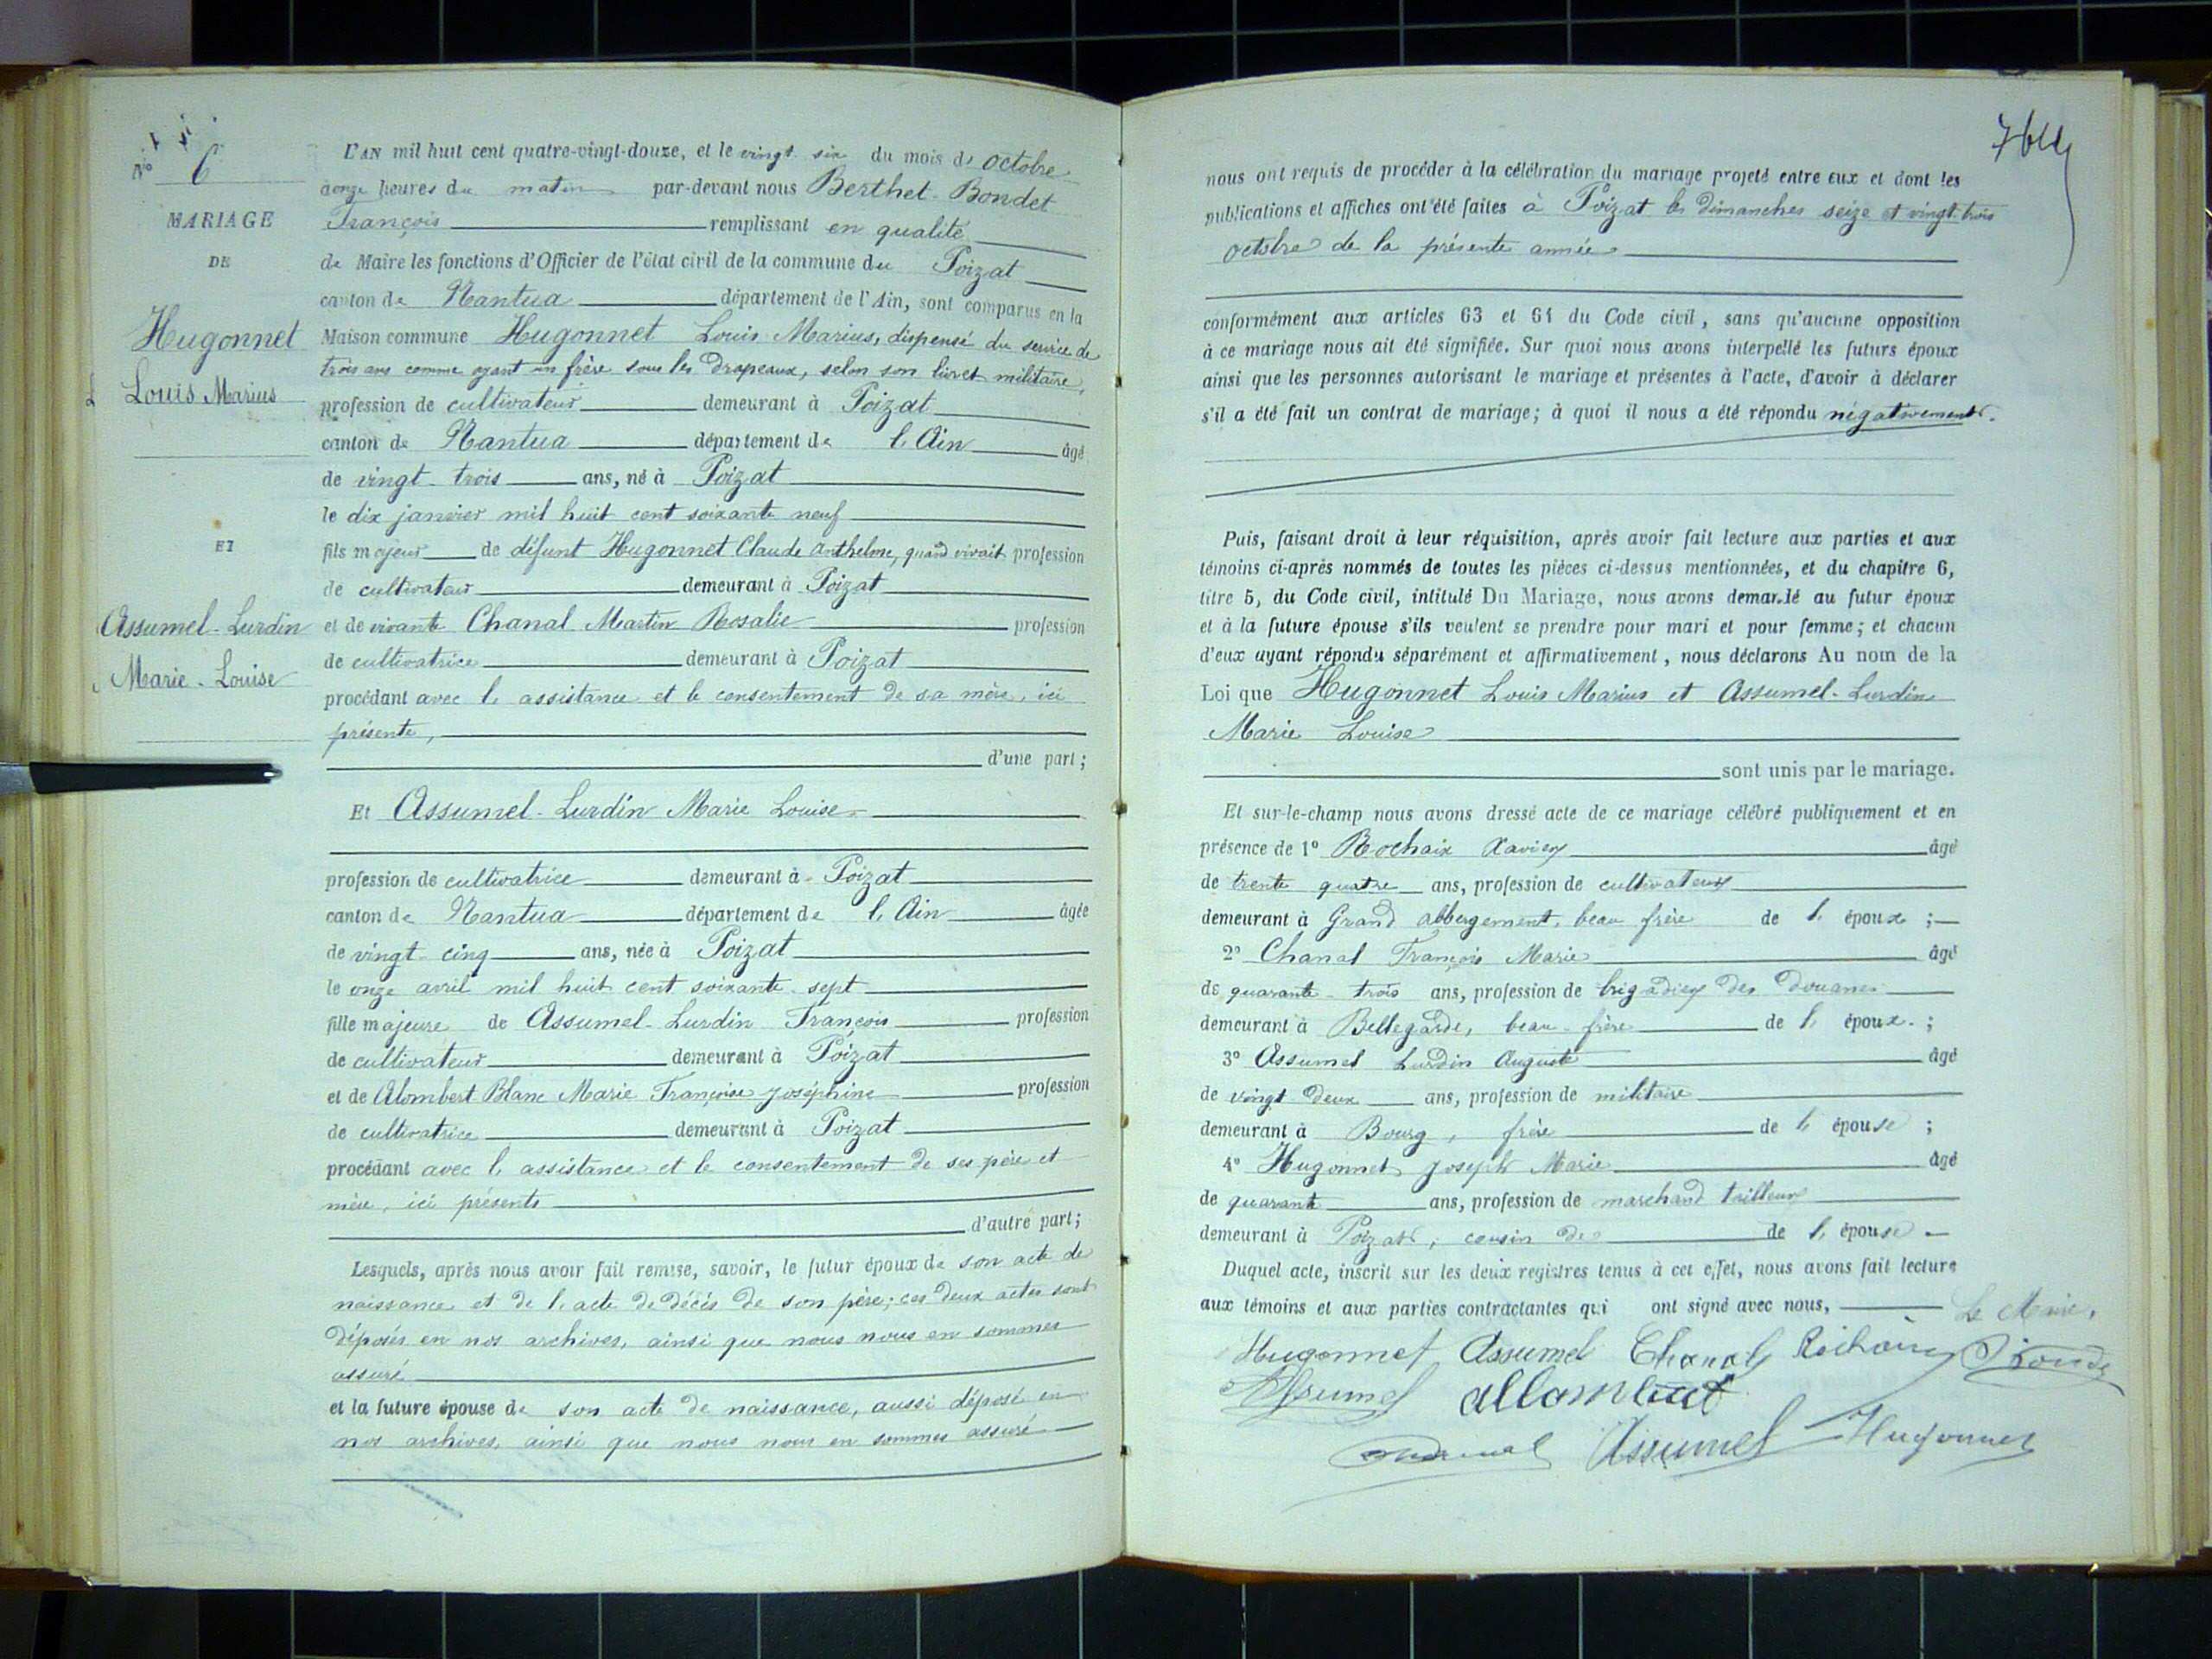 N° 6
MARIAGE
DE
Hugonnet
Louis Marius
ET
Assumel-Lurdin
Marie-Louise
L'AN mil huit cent quatre-vingt-douze, et le vingt six du mois d'octobre
à onze heures du matin par-devant nous Berthet-Bondet
François remplissant en qualité
de Maire les fonctions d'Officier de l'état civil de la commune du Poizat
canton de Nantua département de l'Ain, sont comparus en la
Maison commune Hugonnet Louis Marius, dispensé du service de
trois ans comme ayant un frère sous les drapeaux, selon son livret militaire,
profession de cultivateur demeurant à Poizat
canton de Nantua département de l'Ain âgé
de vingt-trois ans, né à Poizat
le dix janvier mil huit cent soixante neuf
fils majeur de défunt Hugonnet Claude Anthelme, quand vivait profession
de cultivateur demeurant à Poizat
et de vivante Chanal Martin Rosalie profession
de cultivatrice demeurant à Poizat
procédant avec l'assistance et le consentement de sa mère, ici
présente,
d'une part;
Et Assumel-Lurdin Marie Louise
profession de cultivatrice demeurant à Poizat
canton de Nantua département de l'Ain âgée
de vingt-cinq ans, née à Poizat
le onze avril mil huit cent soixante-sept
fille majeure de Assumel-Lurdin François profession
de cultivateur demeurant à Poizat
et de Alombert Blanc Marie Françoise Joséphine profession
de cultivatrice demeurant à Poizat
procédant avec l'assistance et le consentement de ses père et
mère, ici présents
d'autre part;
Lesquels, après nous avoir fait remise, savoir, le futur époux de son acte de
naissance et de l'acte de décès de son père; ces deux actes sont
déposés en nos archives, ainsi que nous nous en sommes
assuré
et la future épouse de son acte de naissance, aussi déposé en
nos archives, ainsi que nous nous en sommes assuré
nous ont requis de procéder à la célébration du mariage projeté entre eux et dont les
publications et affiches ont été faites à Poizat les dimanches seize et vingt-trois
octobre de la présente année
conformément aux articles 63 et 64 du Code civil, sans qu'aucune opposition
à ce mariage nous ait été signifiée. Sur quoi nous avons interpellé les futurs époux
ainsi que les personnes autorisant le mariage et présentes à l'acte, d'avoir à déclarer
s'il a été fait un contrat de mariage; à quoi il nous a été répondu négativement.
Puis, faisant droit à leur réquisition, après avoir fait lecture aux parties et aux
témoins ci-après nommés de toutes les pièces ci-dessus mentionnées, et du chapitre 6,
titre 5, du Code civil, intitulé Du Mariage, nous avons demandé au futur époux
et à la future épouse s'ils veulent se prendre pour mari et pour femme; et chacun
d'eux ayant répondu séparément et affirmativement, nous déclarons Au nom de la
Loi que Hugonnet Louis Marius et Assumel-Lurdin
Marie Louise
sont unis par le mariage.
Et sur-le-champ nous avons dressé acte de ce mariage célébré publiquement et en
présence de 1° Rochaix Xavier âgé
de trente quatre ans, profession de cultivateur
demeurant à Grand abbergement, beau frère de l'époux ;
2° Chanal François Marie âgé
de quarante-trois ans, profession de brigadier des Douanes
demeurant à Bellegarde, beau-frère de l'époux. ;
3° Assumel Lurdin Auguste âgé
de vingt deux ans, profession de militaire
demeurant à Bourg, frère de l'épouse ;
4° Hugonnet Joseph Marie âgé
de quarante ans, profession de marchand tailleur
demeurant à Poizat, cousin de de l'épouse
Duquel acte, inscrit sur les deux registres tenus à cet effet, nous avons fait lecture
aux témoins et aux parties contractantes qui ont signé avec nous, Le Maire,
Hugonnet Assumel Chanal Rochaix
Assumel
Assumel Hugonnet